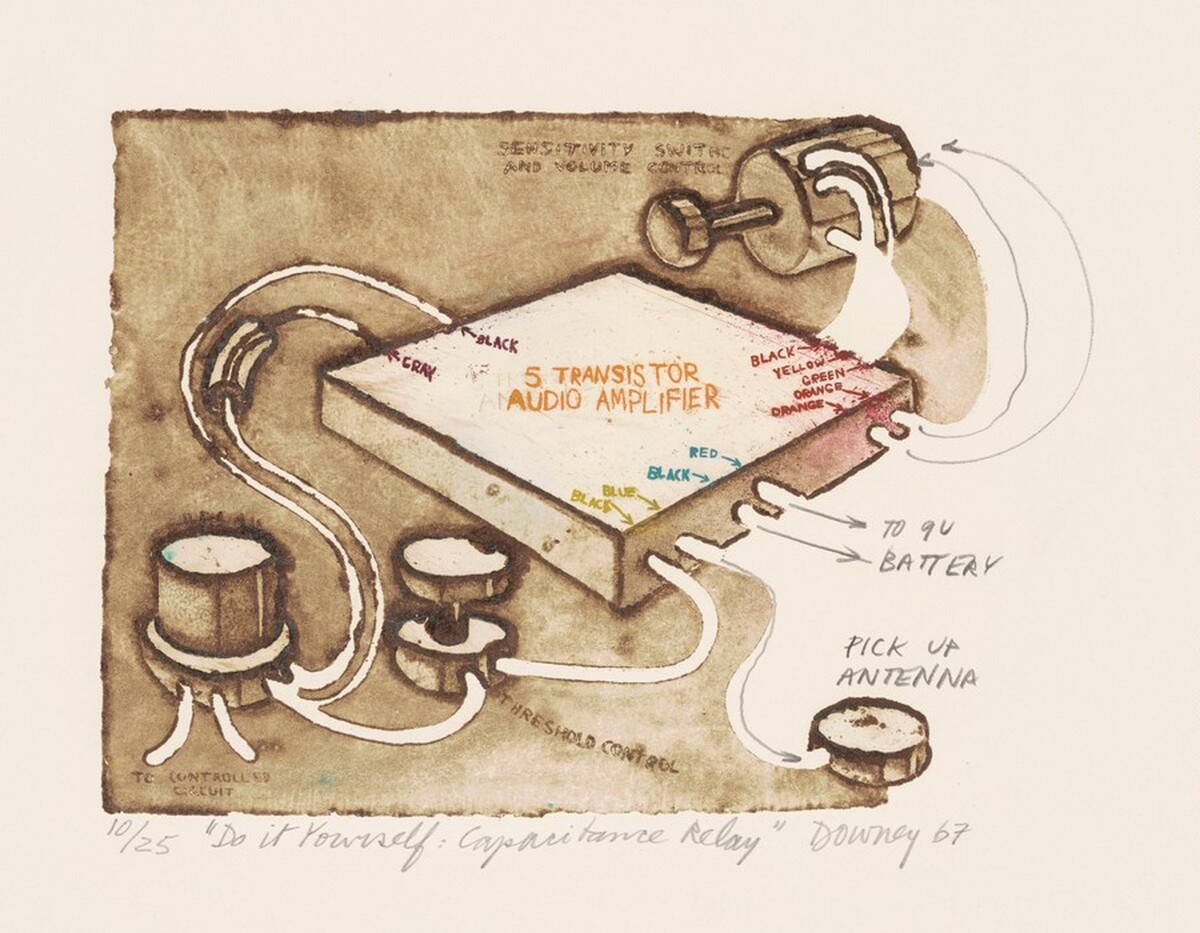 SENSITIVITY SWITHC
AND VOLUME CONTROL
BLACK
GRAY
5 TRANSISTOR
AUDIO AMPLIFIER
BLACK
YELLOW
GREEN
ORANGE
ORANGE
RED
BLACK
BLUE
BLACK
TO 9V
BATTERY
PICK UP
ANTENNA
THRESHOLD CONTROL
TO CONTROLLED
CIRCUIT
10/25 "Do it Yourself: Capacitance Relay" Downey 67